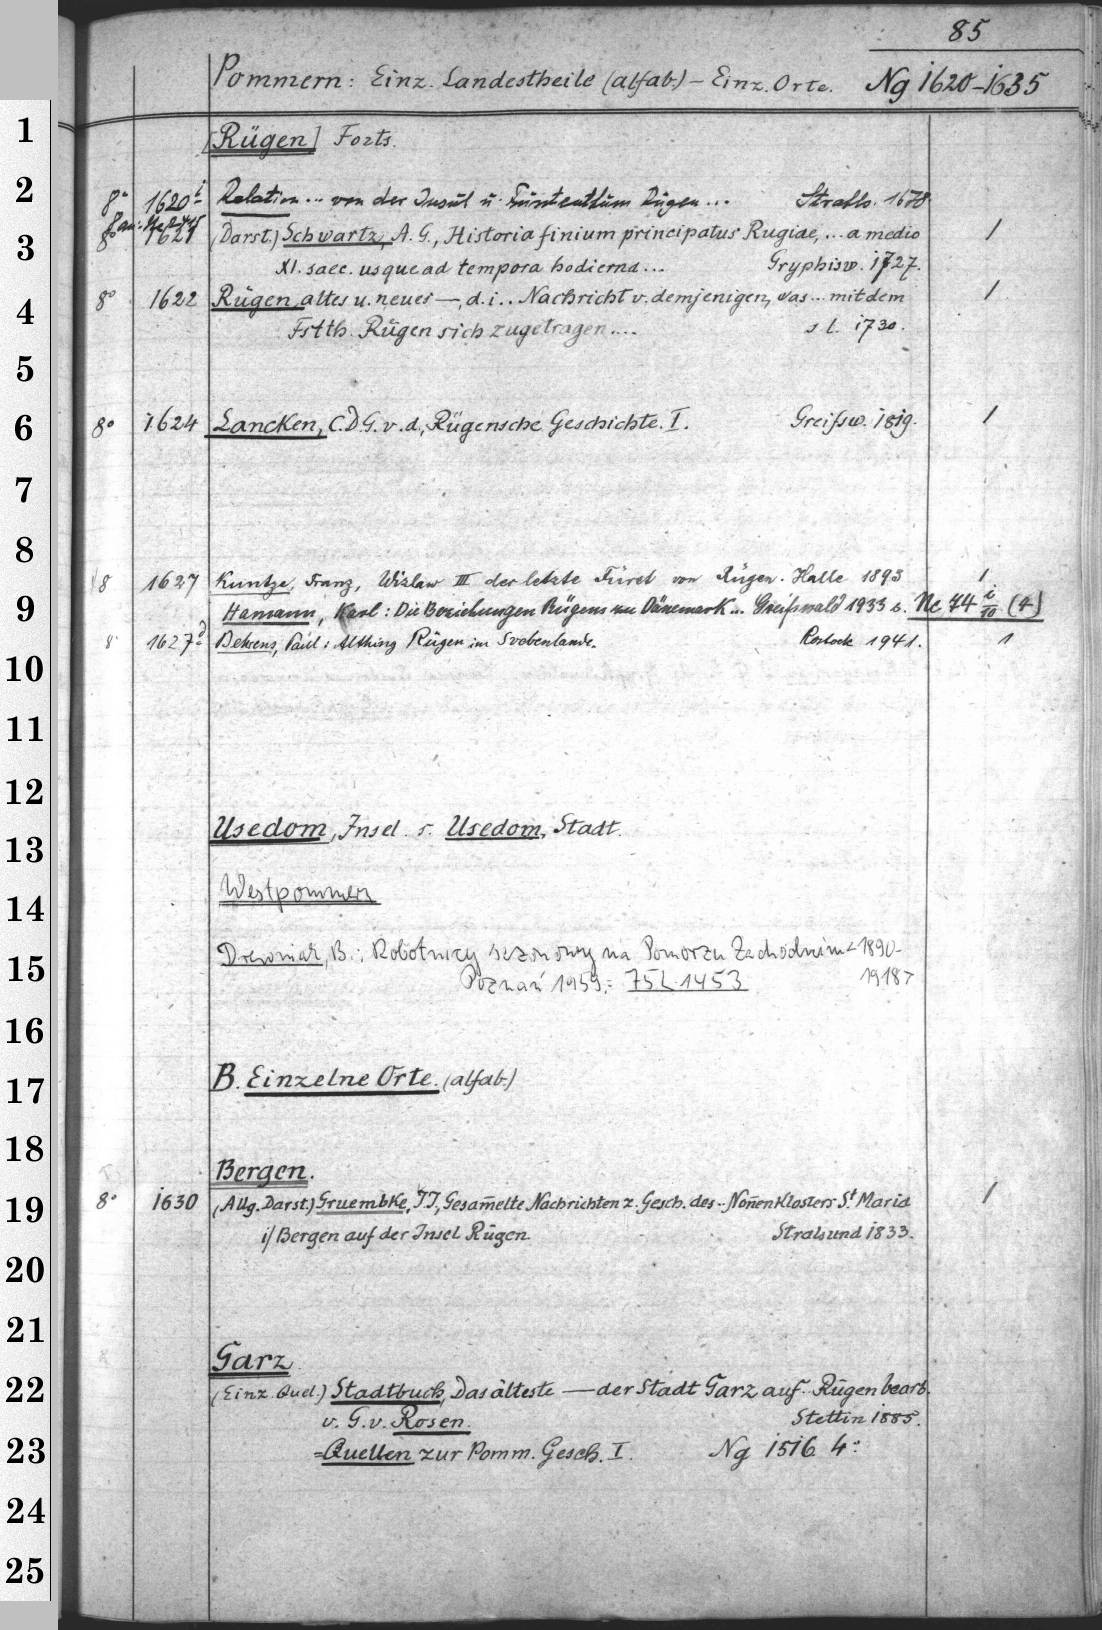 85
Pommern: Einz. Landestheile (alfab.) – Einz. Orte. Ng 1620–1635
1
[Rügen] Forts.
2
8° 1620 i Relation ... von der Insul u. Fürstenthum Rügen ... Strals. 1678
3
8° 1621 (Darst.) Schwartz, A. G., Historia finium principatus Rugiae, ... a medio 1
XI. saec. usque ad tempora hodierna ... Gryphisw. 1727.
4
8° 1622 Rügen, altes u. neues —, d. i. .. Nachricht v. demjenigen, was ... mit dem 1
Fstth. Rügen sich zugetragen .... s l. 1730.
5
6
8° 1624 Lancken, C.D.G. v. d., Rügensche Geschichte. I. Greifsw. 1819. 1
7
8
8 1627 Kuntze, Franz, Wizlaw III der letzte Fürst von Rügen. Halle 1893 1
9
Hamann, Karl: Die Beziehungen Rügens zu Dänemark ... Greifswald 1933 s. Nc 74 i/10 (4)
8° 1627 d Behrens, Paul: Althing Rügen im Svebenlande. Rostock 1941. 1
10
11
12
13
Usedom, Insel s. Usedom, Stadt.
14
Westpommern
15
Drewniak, B.: Robotnicy sezonowy na Pomorzu Zachodnim <1890-
Poznań 1959.= 75 L 1453 1918>
16
17
B. Einzelne Orte. (alfab.)
18
Bergen.
19
8° 1630 (Allg. Darst.) Gruembke, J J, Gesam̄elte Nachrichten z. Gesch. des .. Non̄enklosters St Maria 1
i/ Bergen auf der Insel Rügen. Stralsund 1833.
20
21
Garz
22
(Einz. Quel.) Stadtbuch, Das älteste — der Stadt Garz auf Rügen bearb.
v. G. v. Rosen. Stettin 1885.
23
=Quellen zur Pomm. Gesch. I. Ng 1516 4°
24
25